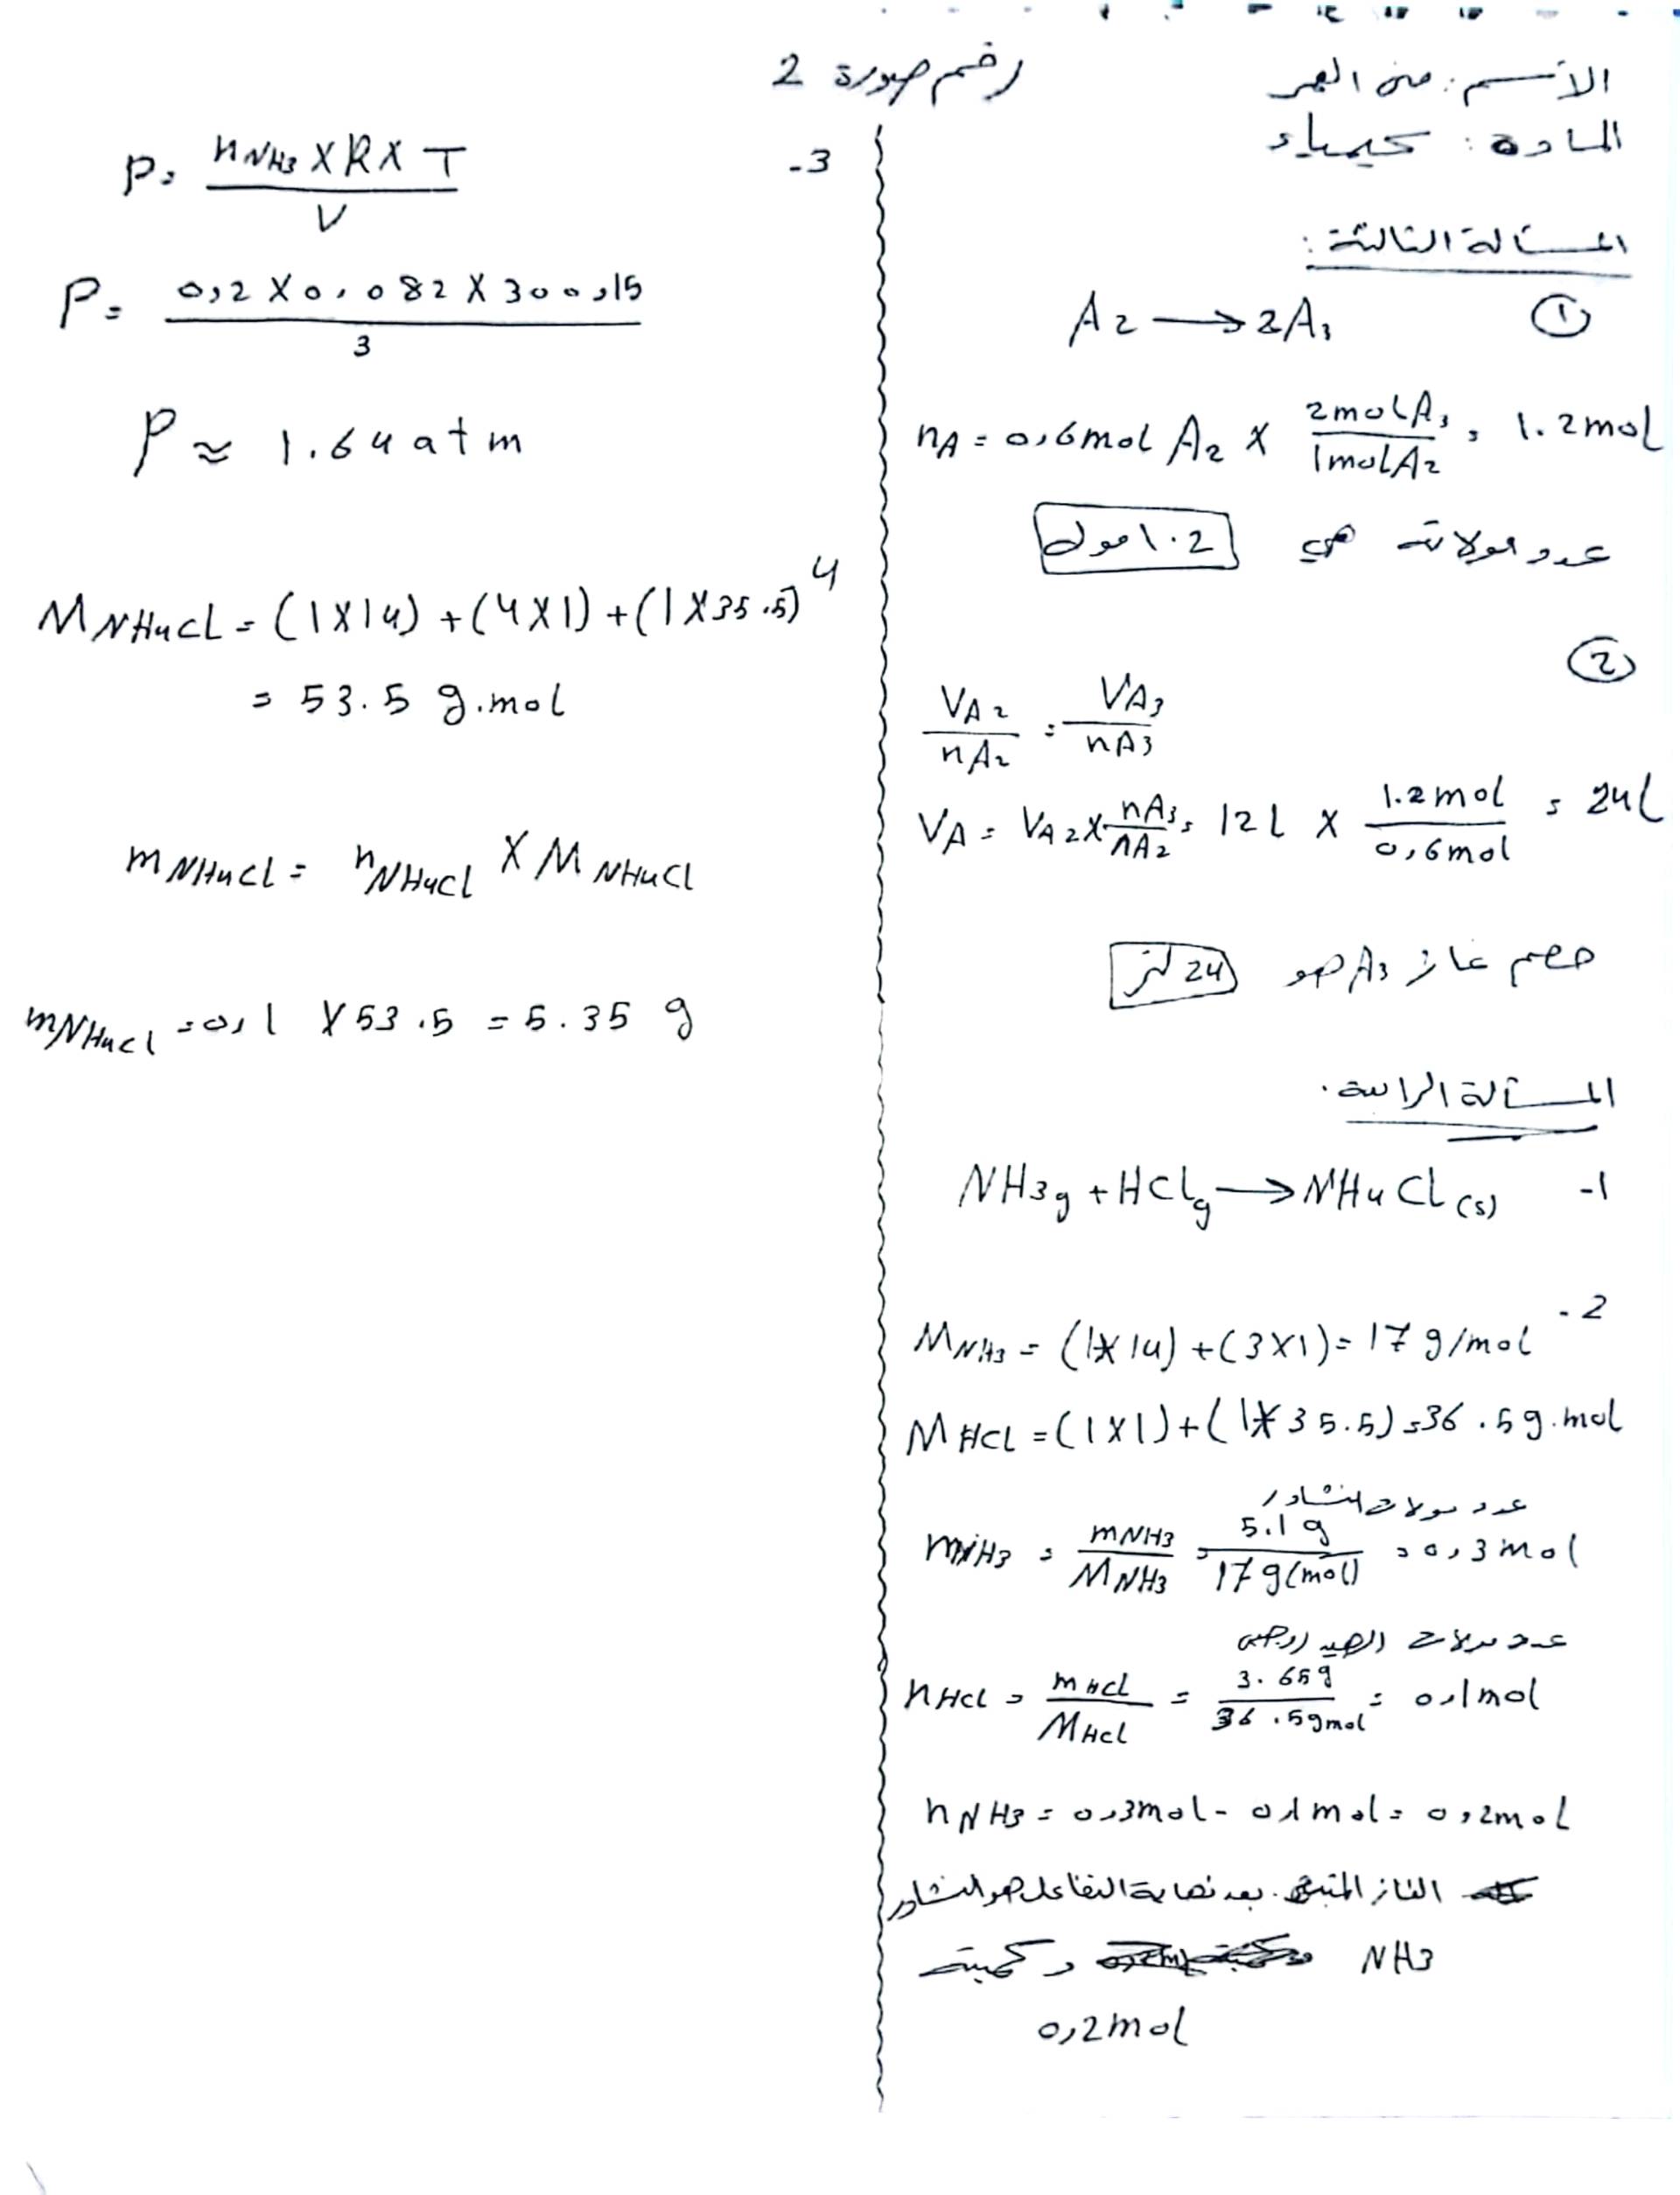 رقم صورة 2
الاسم: من العمر
المادة: كيمياء
المسألة الثالثة:
①
A2 → 2A3
nA = 0,6mol A2 X 2molA3 / 1molA2 = 1.2mol
عدد مولات هي 1.2 مول
②
VA2 / nA2 = VA3 / nA3
VA = VA2 X nA3 / nA2 = 12L X 1.2mol / 0,6mol = 24L
حجم غاز A3 هو 24 لتر
المسألة الرابعة.
1- NH3g + HClg → NH4Cl(s)
2-
MNH3 = (1X14) + (3X1) = 17g/mol
MHCl = (1X1) + (1X35.5) = 36.5g.mol
عدد مولات النشادر
nNH3 = mNH3 / MNH3 = 5.1g / 17g(mol) = 0,3mol
عدد مولات
nHCl = mHCl / MHCl = 3.65g / 36.5gmol = 0,1mol
nNH3 = 0,3mol - 0,1mol = 0,2mol
الغاز المتبقي بعد نهاية التفاعل هو النشادر
NH3 وكمية
0,2mol
3-
P = nNH3 X R X T / V
P = 0,2 X 0,082 X 300,15 / 3
P ≈ 1.64 atm
4
MNH4Cl = (1X14) + (4X1) + (1X35.5)
= 53.5 g.mol
mNH4Cl = nNH4Cl X MNH4Cl
mNH4Cl = 0,1 X 53.5 = 5.35 g